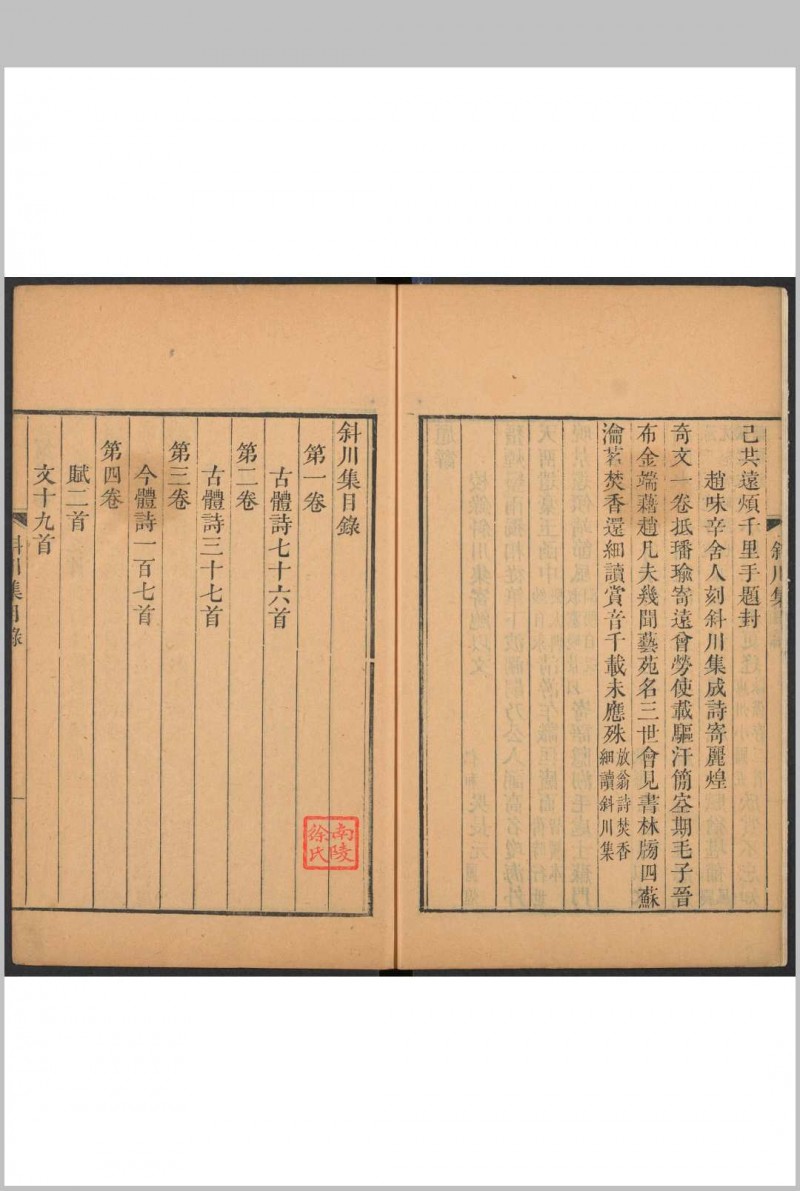 己共遠煩千里手題封
趙味辛舍人刻斜川集成詩寄麗煌
奇文一卷抵璠瑜寄遠曾勞使載驅汗簡空期毛子晉
布金端藉趙凡夫幾聞藝苑名三世會見書林牓四蘇
瀹茗焚香還細讀賞音千載未應殊
放翁詩焚香
細讀斜川集
斜川集
斜川集目錄
第一卷
古體詩七十六首
第二卷
古體詩三十七首
第三卷
今體詩一百七首
第四卷
賦二首
文十九首
斜川集目錄
南陵
徐氏